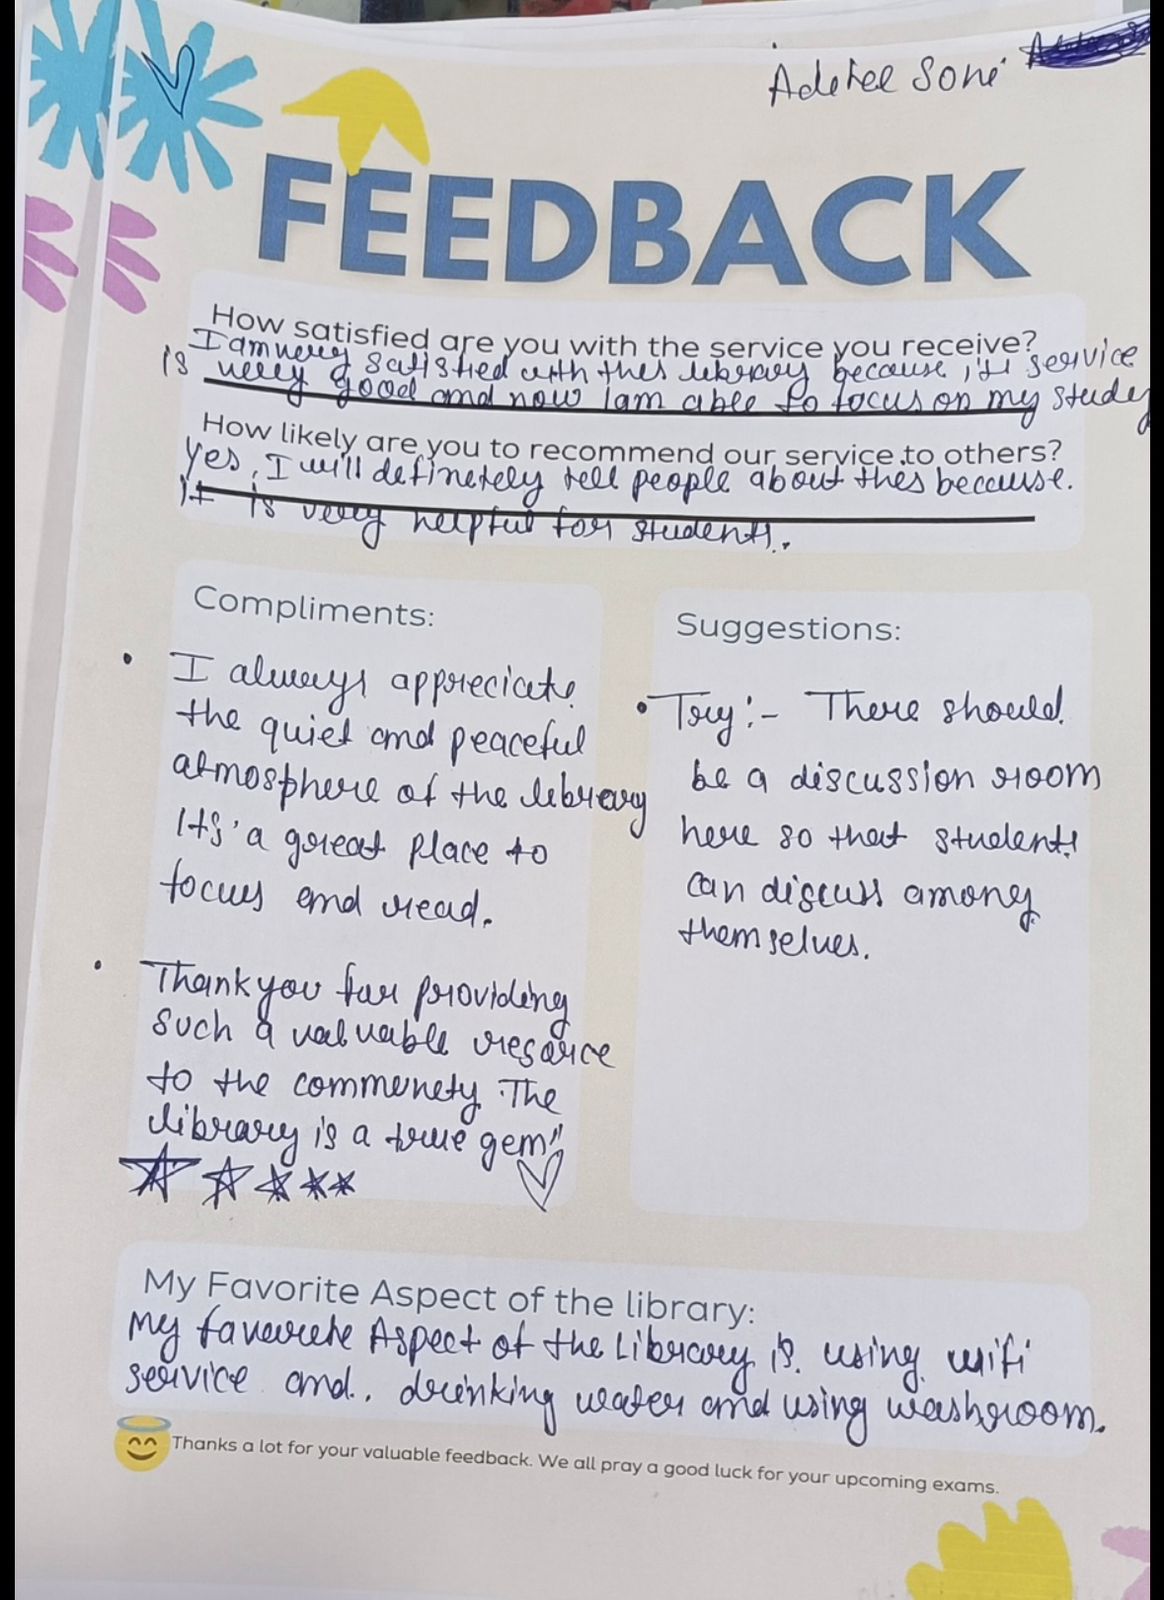 Aditee Soni
FEEDBACK
How satisfied are you with the service you receive?
I am very satisfied with this library because it's service
is very good and now I am able to focus on my study
How likely are you to recommend our service to others?
Yes, I will definetely tell people about this because.
It is very helpful for students.
Compliments:
• I always appreciate
the quiet and peaceful
atmosphere of the library
Its' a great place to
focus and read.
• Thank you for providing
such a valuable resorce
to the community. The
library is a true gem"
Suggestions:
• Try:- There should
be a discussion room
here so that students
can discuss among
themselves.
My Favorite Aspect of the library:
My favourite Aspect of the Library is. using wifi
service and. drinking water and using washroom.
Thanks a lot for your valuable feedback. We all pray a good luck for your upcoming exams.